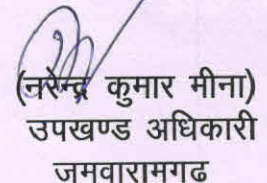 (नरेन्द्र कुमार मीना)
उपखण्ड अधिकारी
जमवारामगढ